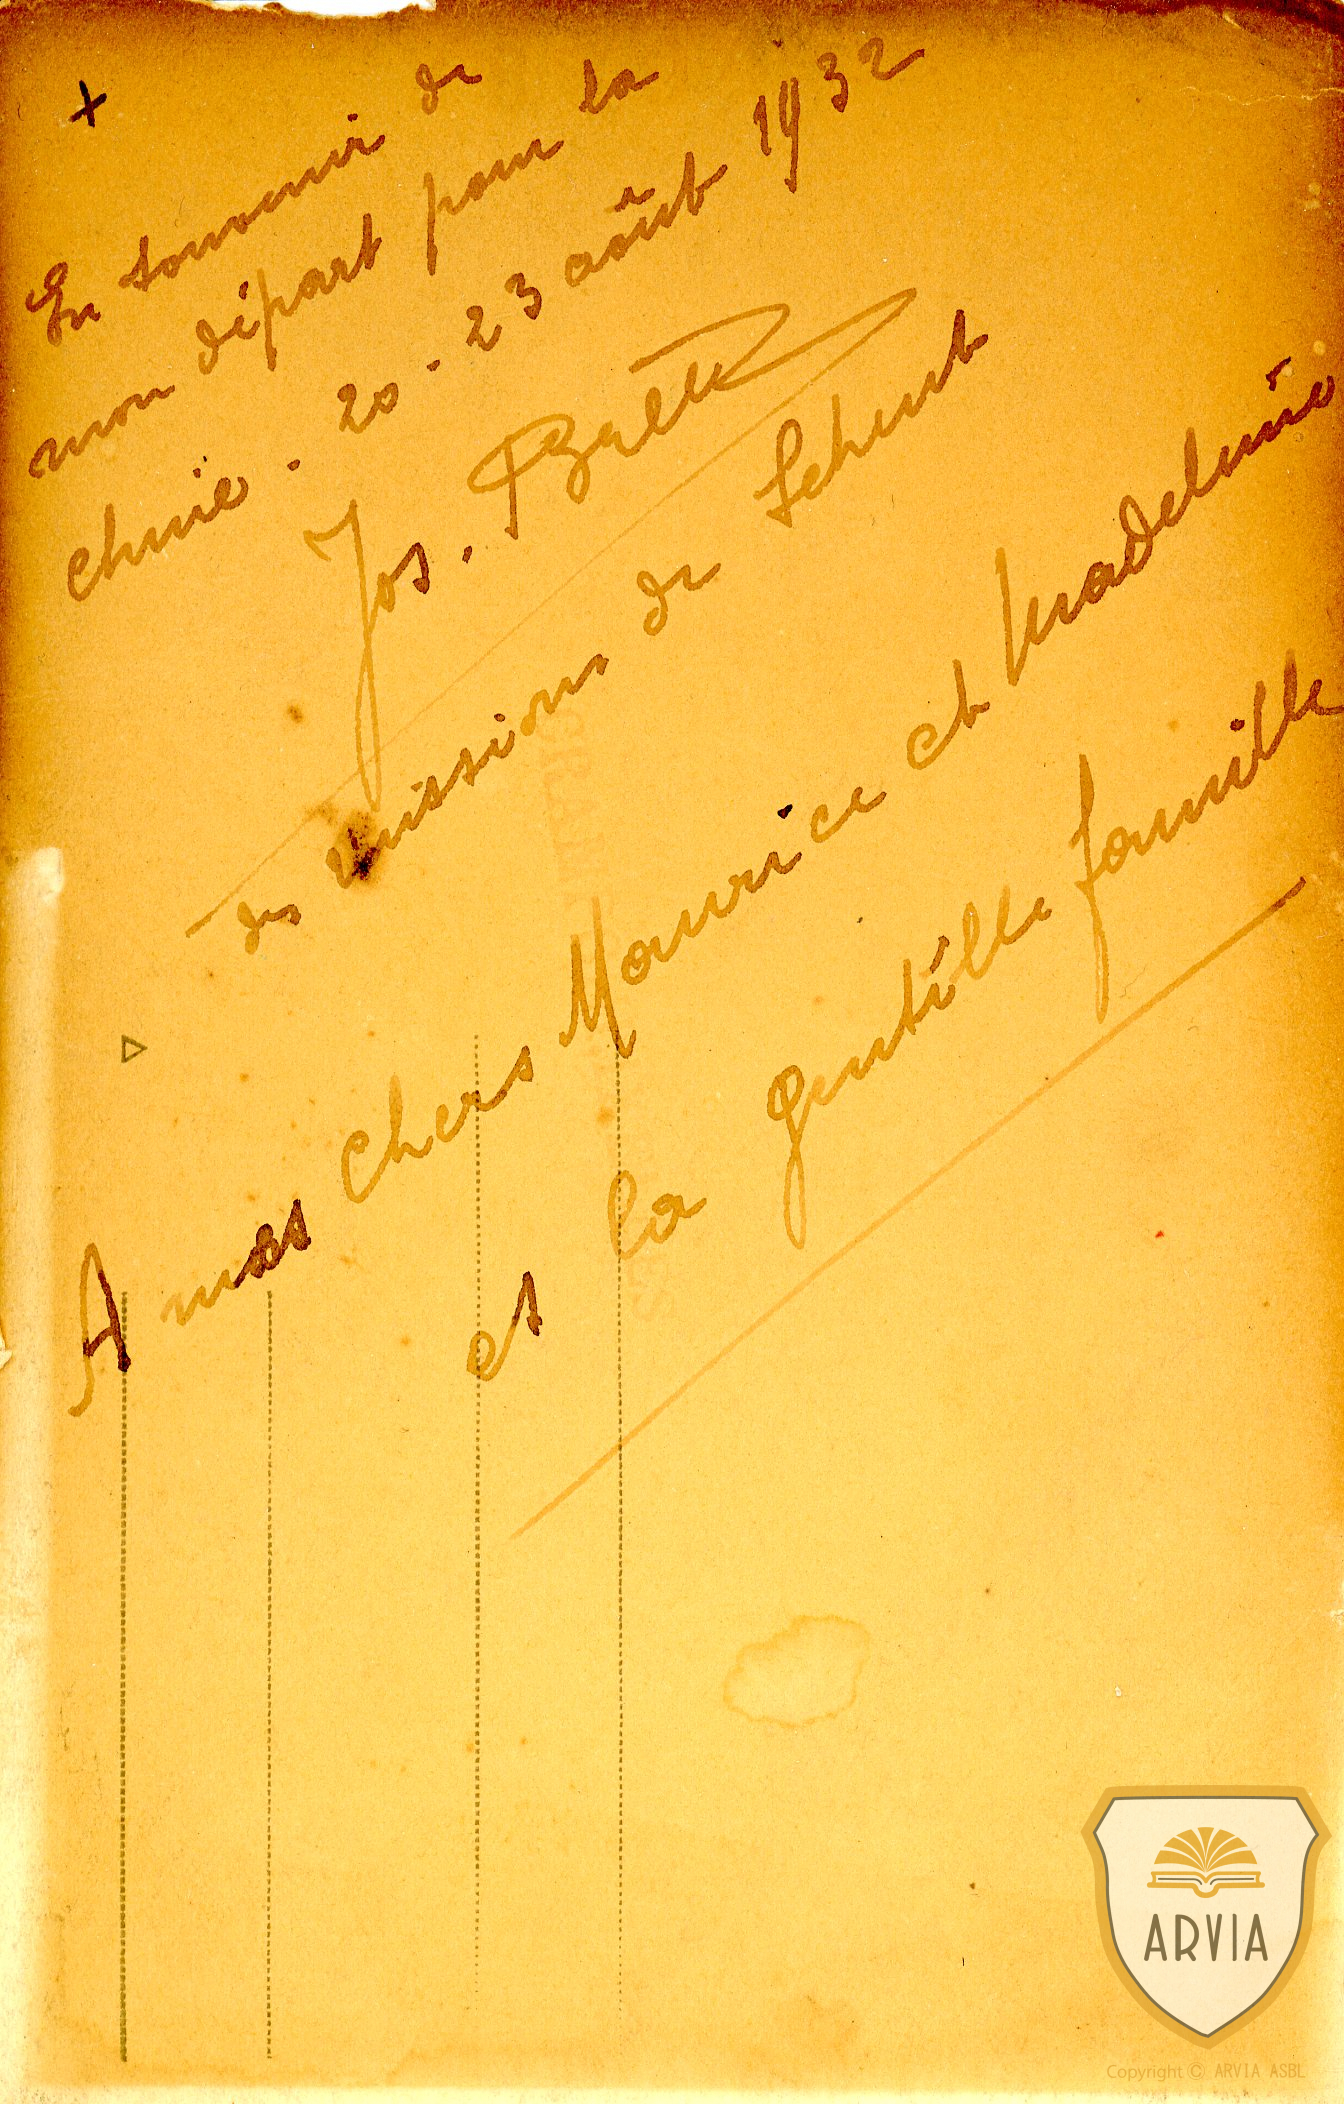 +
En souvenir de
mon départ pour la
chine. 20 - 23 août 1932
Jos.
des missions de Scheut
A mes chers Maurice et Madeleine
et la gentille famille
ARVIA
Copyright © ARVIA ASBL